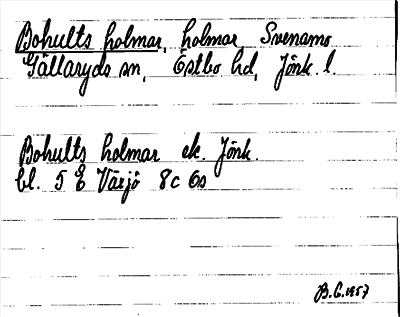 Bohults holmar, holmar Svenamo
Gällaryds sn, Östbo hd, Jönk. l.
Bohults holmar ek. Jönk.
bl. 5 E Värjö 8c 6s
B.G. 1957